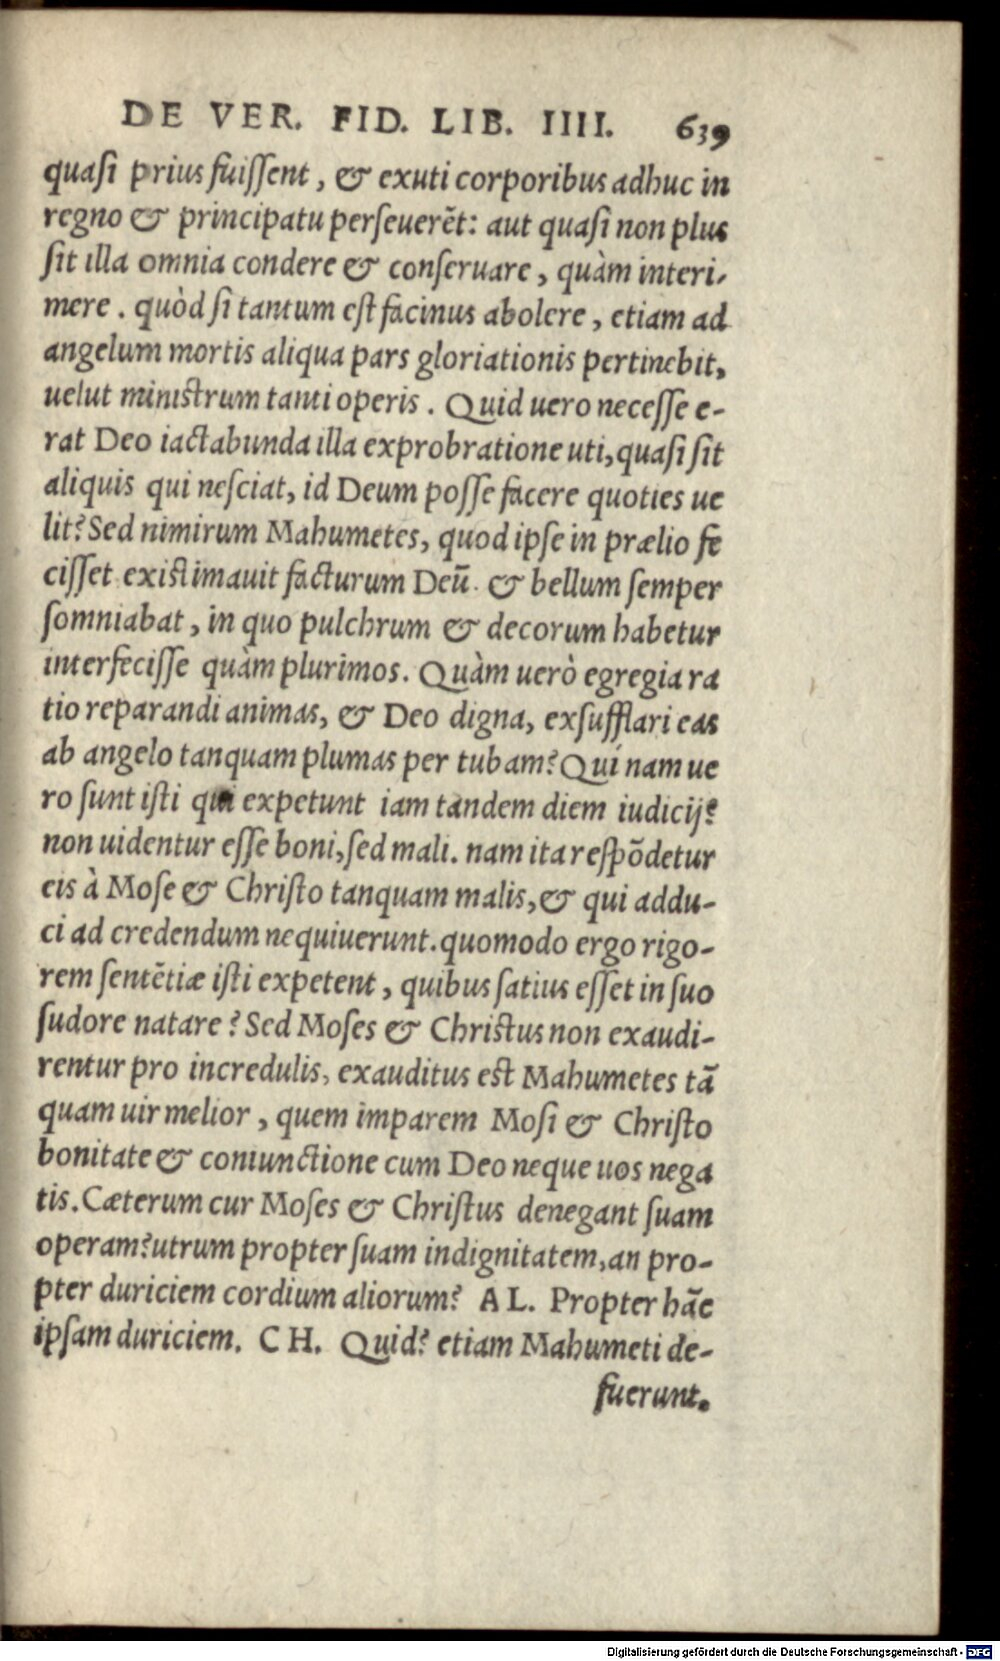 DE VER. FID. LIB. IIII. 639
quasi prius fuissent, & exuti corporibus adhuc in
regno & principatu perseuerẽt: aut quasi non plus
sit illa omnia condere & conseruare, quàm interi-
mere. quòd si tantum est facinus abolere, etiam ad
angelum mortis aliqua pars gloriationis pertinebit,
uelut ministrum tanti operis. Quid uero necesse e-
rat Deo iactabunda illa exprobratione uti, quasi sit
aliquis qui nesciat, id Deum posse facere quoties ue
lit? Sed nimirum Mahumetes, quod ipse in prælio fe
cisset existimauit facturum Deũ. & bellum semper
somniabat, in quo pulchrum & decorum habetur
interfecisse quàm plurimos. Quàm uerò egregia ra
tio reparandi animas, & Deo digna, exsufflari eas
ab angelo tanquam plumas per tubam? Quí nam ue
ro sunt isti qui expetunt iam tandem diem iudicij?
non uidentur esse boni, sed mali. nam ita respõdetur
eis à Mose & Christo tanquam malis, & qui addu-
ci ad credendum nequiuerunt. quomodo ergo rigo-
rem sentẽtiæ isti expetent, quibus satius esset in suo
sudore natare? Sed Moses & Christus non exaudi-
rentur pro incredulis, exauditus est Mahumetes tã
quam uir melior, quem imparem Mosi & Christo
bonitate & coniunctione cum Deo neque uos nega
tis. Cæterum cur Moses & Christus denegant suam
operam? utrum propter suam indignitatem, an pro-
pter duriciem cordium aliorum? AL. Propter hãc
ipsam duriciem. CH. Quid? etiam Mahumeti de-
fuerunt.
Digitalisierung gefördert durch die Deutsche Forschungsgemeinschaft - DFG